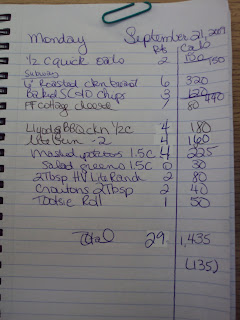 Monday September 21, 2009
Pts Cals
1/2 C quick oats 2 150
Subway
6" Roasted ckn breast 6 320
Baked SC&O Chips 3
FF Cottage cheese 80
BBQ ckn 1/2 C 4 180
Lite Bun - 2 4 160
Mashed potatoes 1.5C 4 225
Salad greens 1.5C 0 30
2Tbsp HV Lite Ranch 2 80
Croutons 2Tbsp 2 40
Tootsie Roll 1 50
Total 29 1,435
(135)